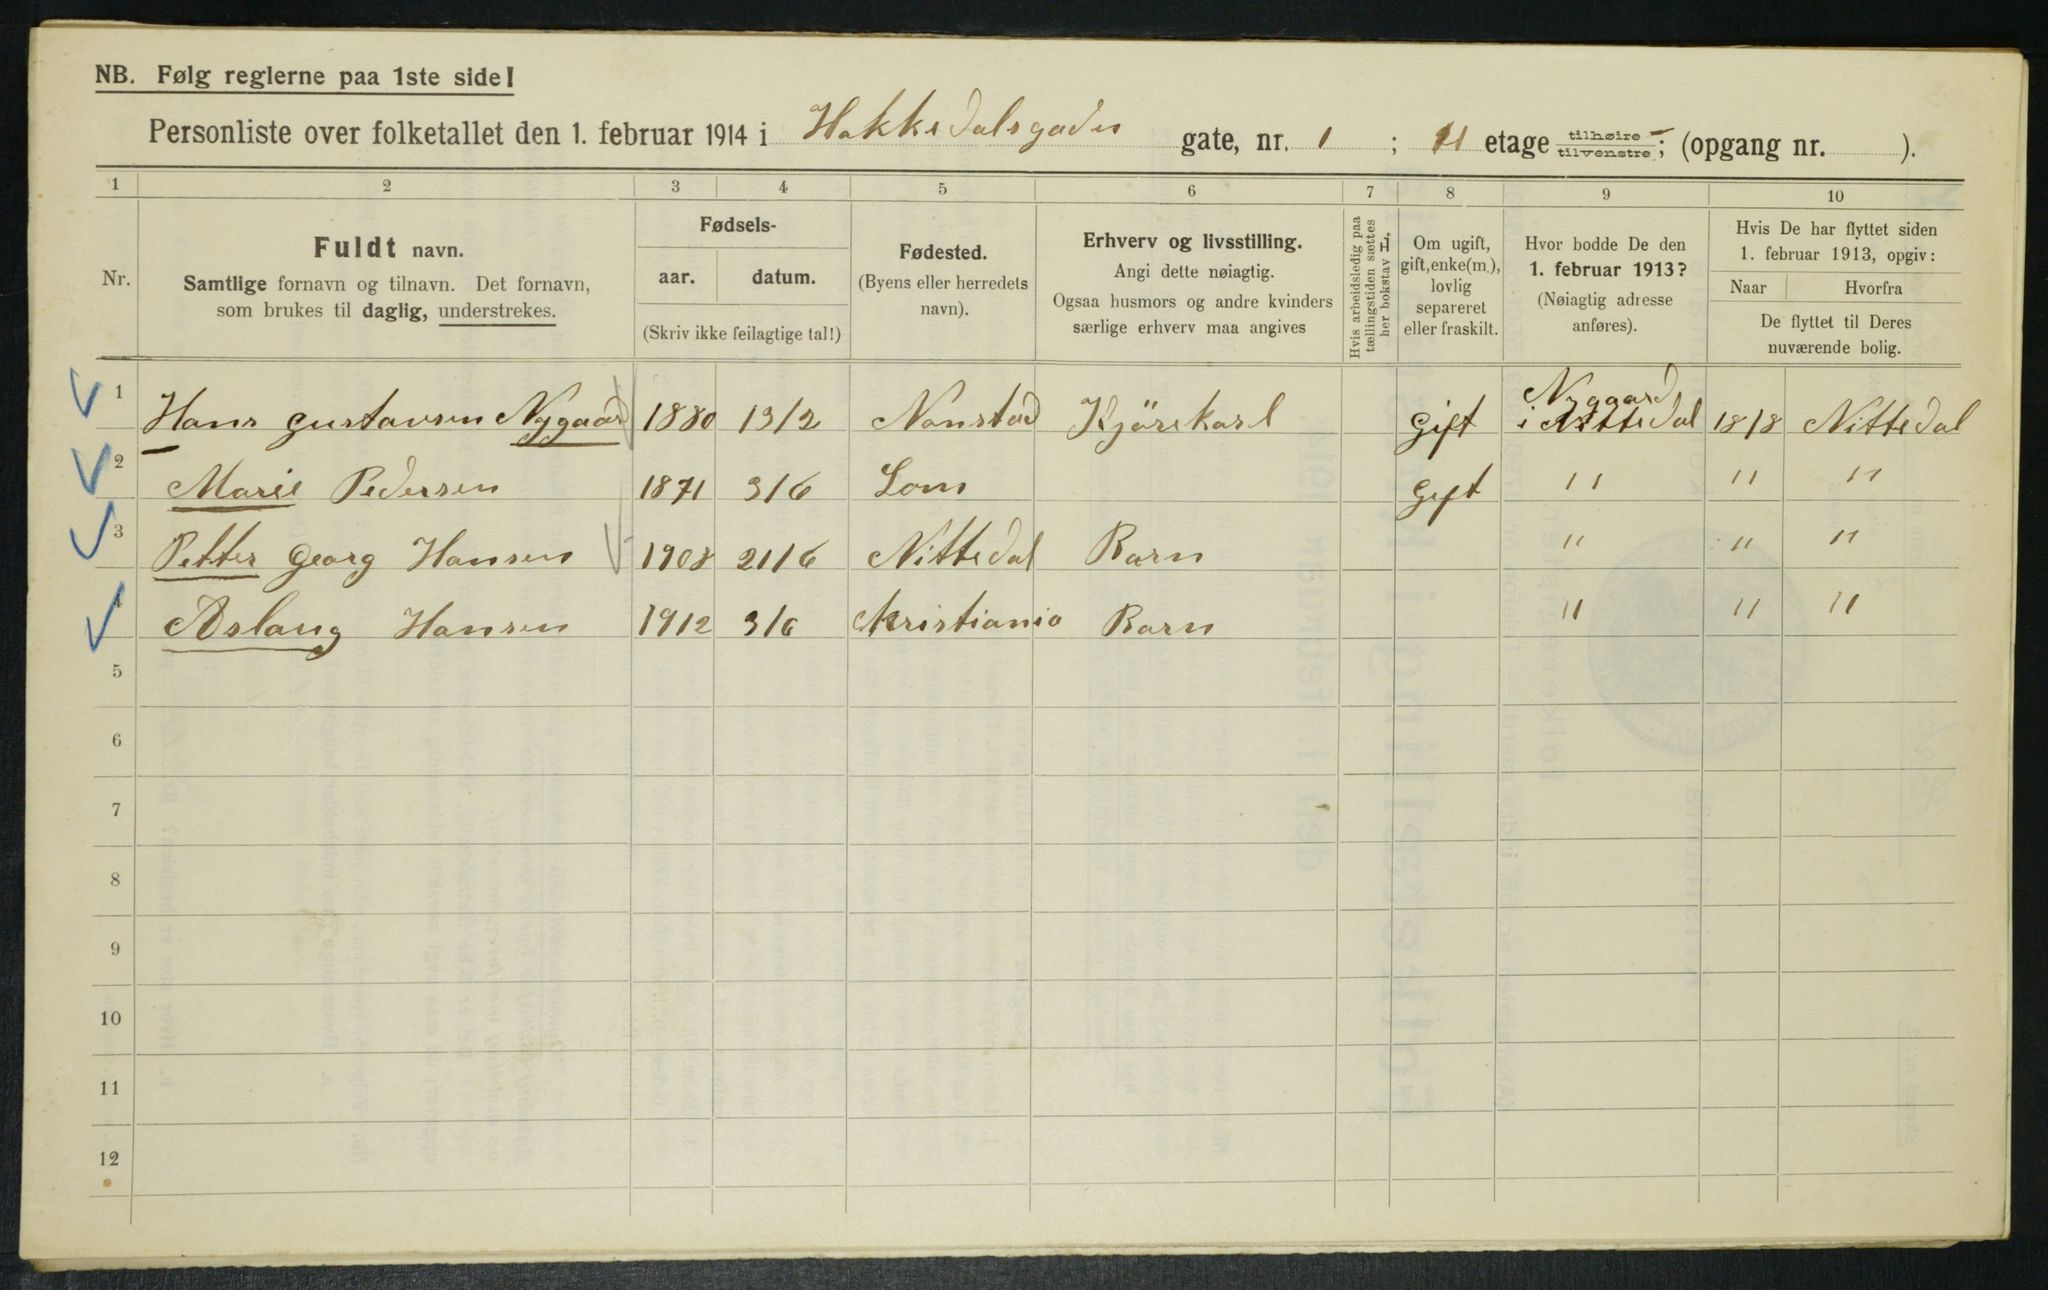 NB. Følg reglerne paa 1ste side!
Personliste over folketallet den 1. februar 1914 i Hakkedalsgaden gate, nr. 1 ; 11 etage tilhøire tilvenstre; (opgang nr. ).
1 2 3 4 5 6 7 8 9 10
Nr.
Fuldt navn.
Samtlige fornavn og tilnavn. Det fornavn,
som brukes til daglig, understrekes.
Fødsels-
aar. datum.
(Skriv ikke feilagtige tal!)
Fødested.
(Byens eller herredets
navn).
Erhverv og livsstilling.
Angi dette nøiagtig.
Ogsaa husmors og andre kvinders
særlige erhverv maa angives
Hvis arbeidsledig paa
tællingstiden sættes
her bokstav H.
Om ugift,
gift, enke(m.),
lovlig
separeret
eller fraskilt.
Hvor bodde De den
1. februar 1913?
(Nøiagtig adresse
anføres).
Hvis De har flyttet siden
1. februar 1913, opgiv:
Naar Hvorfra
De flyttet til Deres
nuværende bolig.
1 Hans Gustavsen Nyggaard 1880 13/2 Nanstad Kjörekarl Gift Nyggaard i Nittedal 18/8 Nittedal
2 Marie Pedersen 1871 3/6 Lom Gift " " "
3 Petter Georg Hansen 1908 21/6 Nittedal Barn " " "
4 Aslaug Hansen 1912 3/6 Kristiania Barn " " "
5
6
7
8
9
10
11
12